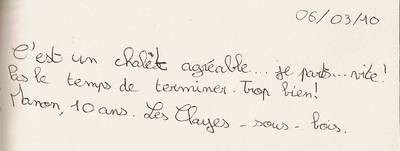 06/03/10
C'est un chalèt agréable... je pars... vite!
Pas le temps de terminer. Trop bien!
Manon, 10 ans. Les Clayes - sous - bois.